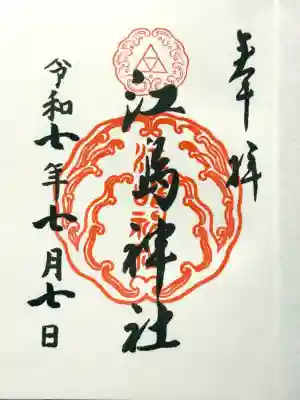 奉拝
江島神社
令和七年七月七日